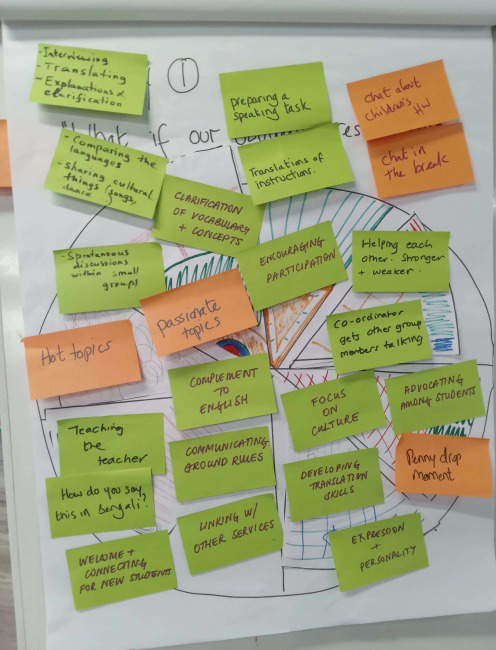 - Interviewing
- Translating
- Explanations &
clarification
①
preparing a
speaking task
chat about
children's
HW
"What if our
res
- Comparing the
languages
- sharing cultural
things (songs,
dance
Translations of
instructions.
chat in
the break
CLARIFICATION
OF VOCABULARY
+ CONCEPTS
- Spontaneous
discussions
within small
group)
ENCOURAGING
PARTICIPATION
Helping each
other. Stronger
+ weaker.
Hot topics
passionate
topics
Co-ordinator
gets other group
members talking
COMPLEMENT
TO
ENGLISH
FOCUS
ON
CULTURE
ADVOCATING
AMONG STUDENTS
Teaching
the
teacher
COMMUNICATING
GROUND RULES
Penny drop
moment
How do you say,
this in Bengali.
DEVELOPING
TRANSLATION
SKILLS
LINKING W/
OTHER SERVICES
WELCOME +
CONNECTING
FOR NEW STUDENTS
EXPRESSION
+
PERSONALITY